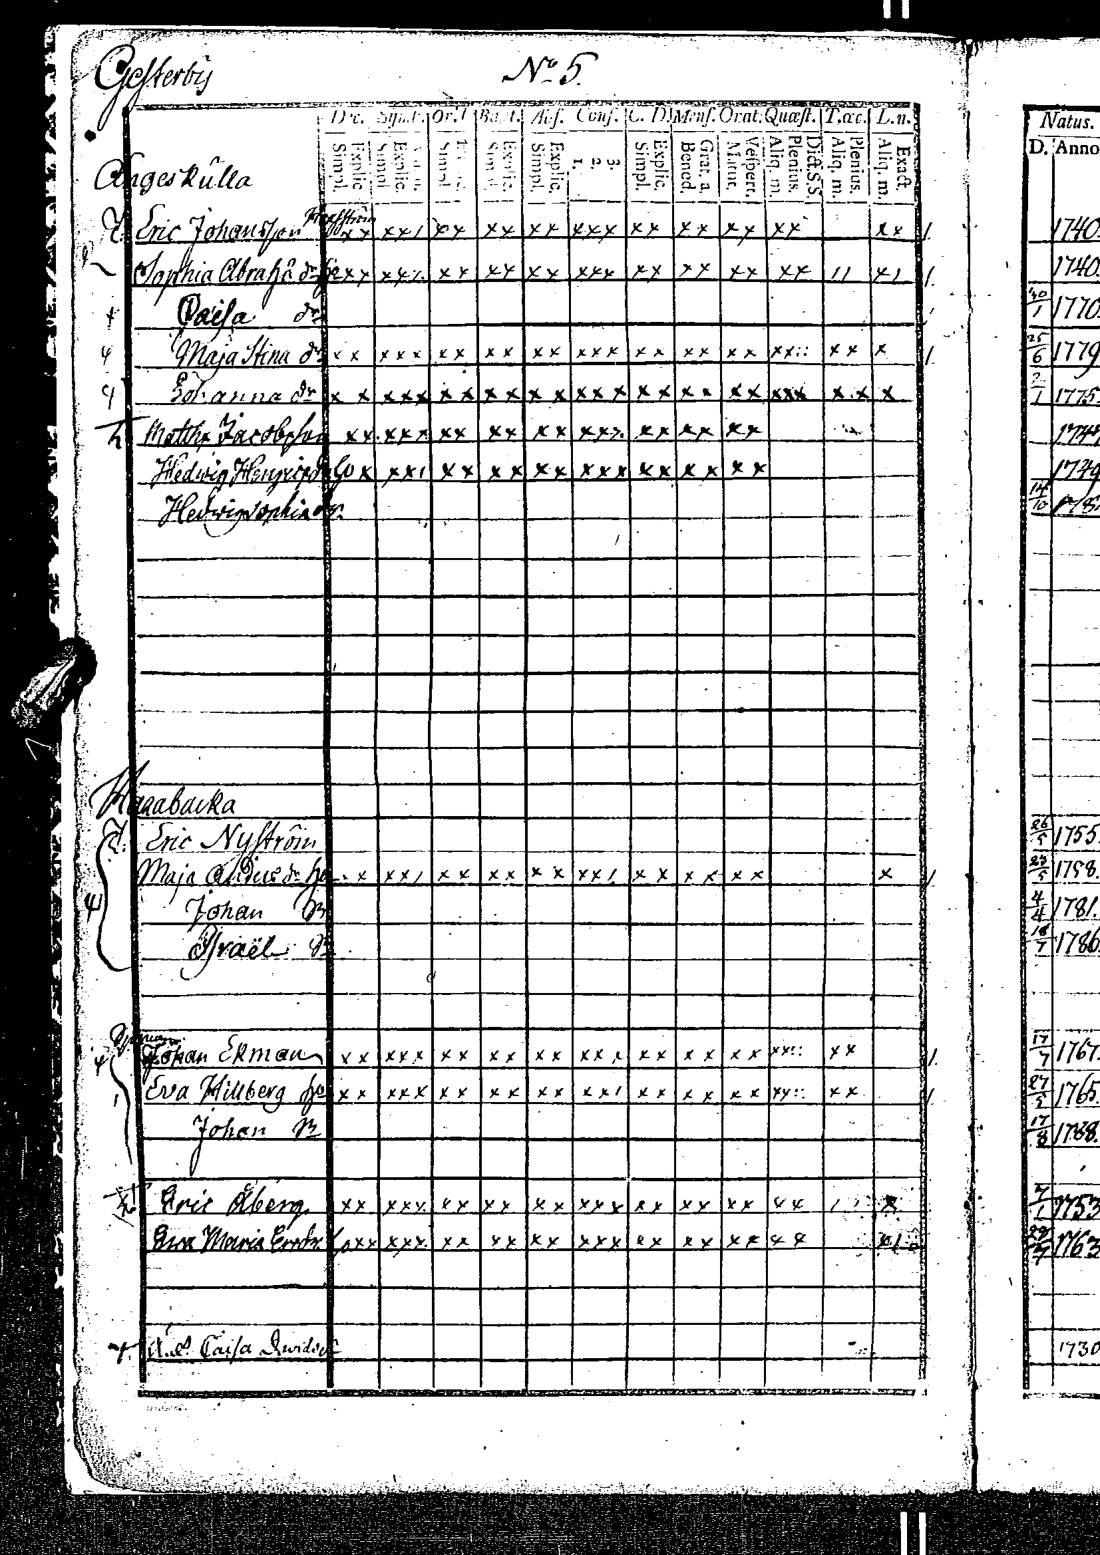 Gesterby No 5.
Natus.
Dec. Symb. Or. D. Bapt. Abs. Conf. C. D. Mens. Orat. Quæst. T.œc. L.n.
D. Anno
Simpl. Explic. Simpl. Explic. Simpl. Simpl. Explic. Simpl. Explic. 1. 2. 3. Simpl. Explic. Bened. Grat. a. Matut. Vespert. Aliq. m. Plenius. Dict. S.S. Aliq. m. Plenius. Aliq. m. Exact
Ångeskulla
Eric Johansson xx xx/ xx xx xx xxx xx xx xx xx xx 1740.
Sophia Abrah dr ho xx xx xx xx xxx xx xx xx xx 11 x1 1740.
Caisa dr 1770.
Maja Stina dr xx xxx xx xx xx xxx xx xx xx xx:: xx x 25/6 1779
Johanna dr xx xxx xx xx xx xxx xx xx xx xxx xx x 1775.
Matths Jacobsson xx xxx xx xx xx xxx xx xx xx
Hedwig Henricsdr ho x xx1 xx xx xx xxx xx xx xx 1749
Hedwig Sophia dr. 14/10
Hagabacka
Eric Nyström 26/5 1755.
Maja Anders dr ho x xx/ xx xx xx xx/ xx xx xx x 1758.
Johan Sn 4/4 1781.
Israël Sn 18/7 1786
Johan Ekman xx xxx xx xx xx xxx xx xx xx xx:: xx 17/7 1767.
Eva Hillberg ho xx xxx xx xx xx xx1 xx xx xx xx:: xx 1765.
Johan Sn 17/8 1788.
Eric Åberg xx xxx xx xx xx xxx xx xx xx xx x 7/1 1753
Eva Maria Ersdr ho xx xxx xx xx xx xxx xx xx xx xx 1763
Caisa 1730